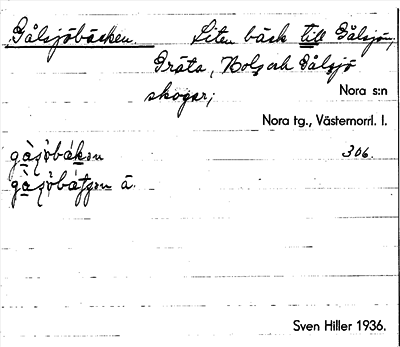 Gålsjöbäcken. Liten bäck till Gålsjön,
Gräta, Nolg och Gålsjö
skogar;
Nora s:n
Nora tg., Västernorrl. l.
gàʃöbákən 306.
gàʃöbátʃən ā.
Sven Hiller 1936.